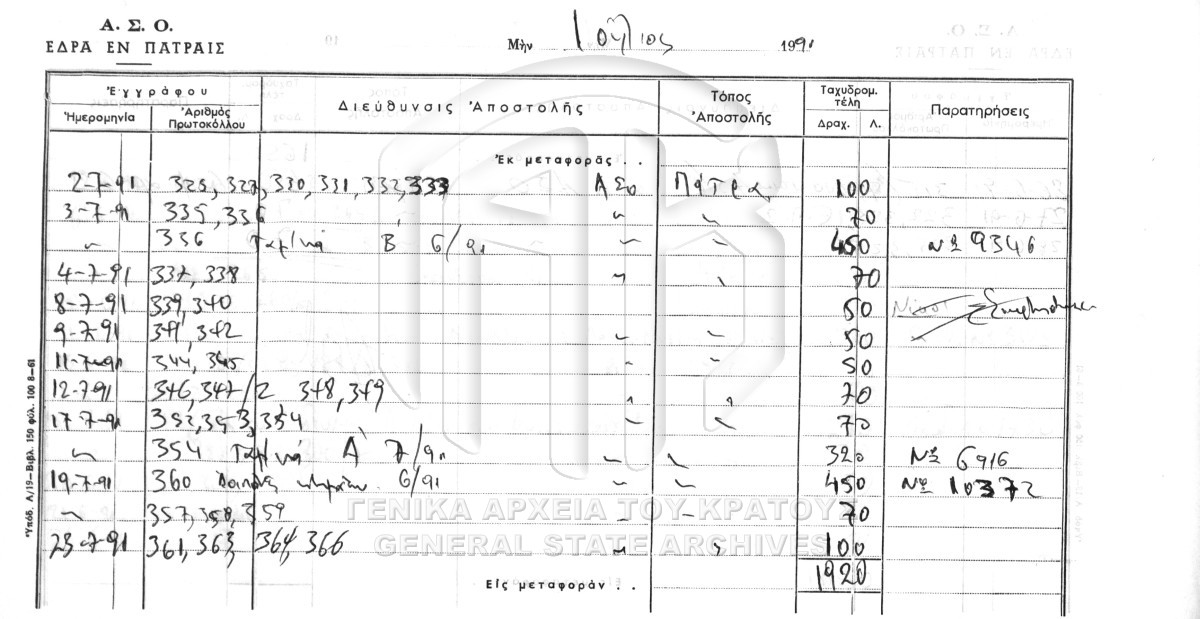 Α. Σ. Ο.
ΕΔΡΑ ΕΝ ΠΑΤΡΑΙΣ
Μὴν Ιούλιος 1991
Ἐγγράφου Διεύθυνσις Ἀποστολῆς Τόπος Ἀποστολῆς Ταχυδρομ. τέλη Παρατηρήσεις
Ἡμερομηνία Ἀριθμὸς Πρωτοκόλλου Δραχ. Λ.
Ἐκ μεταφορᾶς . .
2-7-91 325, 327, 330, 331, 332, 333 ΑΣΟ Πάτρα 100
3-7-91 335, 336 〃 〃 70
〃 336 Β 6/91 〃 〃 450 Νο 9346
4-7-91 337, 338 〃 〃 70
8-7-91 339, 340 50
9-7-91 341, 342 〃 〃 50
11-7-91 344, 345 〃 〃 50
12-7-91 346, 347/2 348, 349 〃 〃 70
17-7-91 352, 353, 354 〃 〃 70
〃 354 Α 7/91 〃 〃 320 Νο 6916
19-7-91 360 6/91 〃 〃 450 Νο 10372
〃 357, 358, 359 〃 〃 70
23-7-91 361, 363, 364, 366 〃 〃 100
Εἰς μεταφορὰν . . 1920
Ὑπόδ. Λ/19—Βιβλ. 150 φύλ. 100 8-61
ΓΕΝΙΚΑ ΑΡΧΕΙΑ ΤΟΥ ΚΡΑΤΟΥΣ
GENERAL STATE ARCHIVES